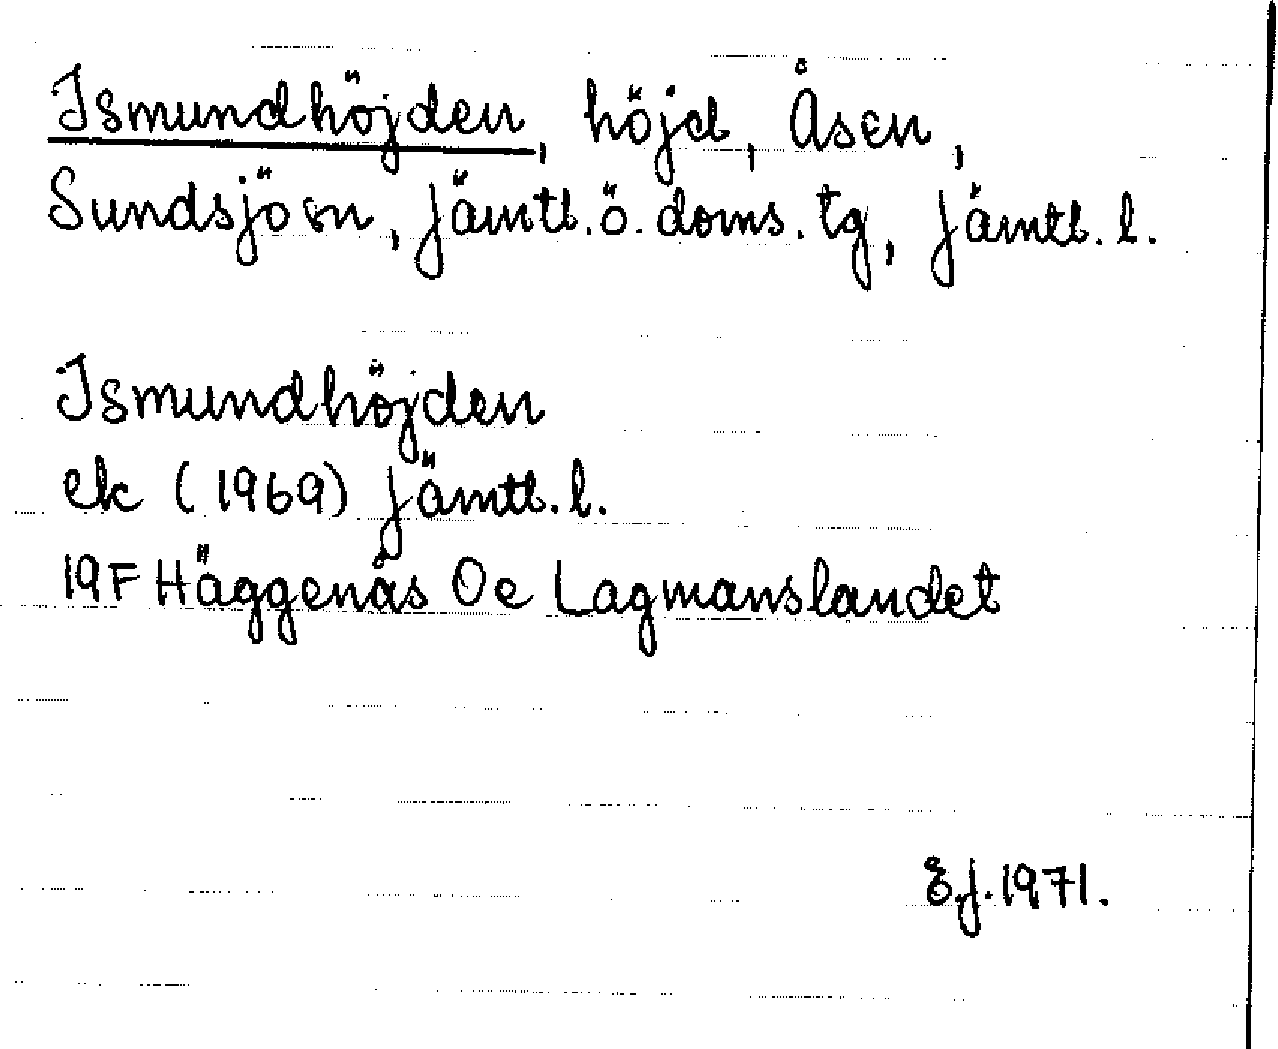 Ismundhöjden, höjd, Åsen,
Sundsjö sn, Jämtl. ö. doms. tg, Jämtl. l.
Ismundhöjden
ek (1969) Jämtl. l.
19F Häggenås Oe Lagmanslandet
E.J. 1971.